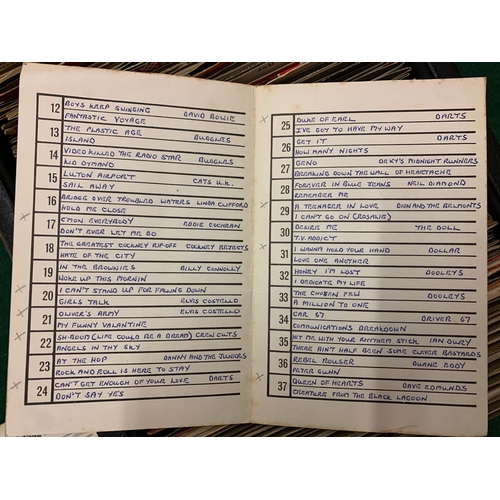 12 BOYS KEEP SWINGING DAVID BOWIE
FANTASTIC VOYAGE
13 THE PLASTIC AGE BUGGLES
ISLAND
14 VIDEO KILLED THE RADIO STAR BUGGLES
KID DYMAND
15 LUTON AIRPORT CATS U.K.
SAIL AWAY
16 BRIDGE OVER TROUBLED WATERS LINDA CLIFFORD
HOLD ME CLOSE
17 C'MON EVERYBODY EDDIE COCHRAN
DON'T EVER LET ME GO
18 THE GREATEST COCKNEY RIP-OFF COCKNEY REJECTS
HATE OF THE CITY
19 IN THE BROWNIES BILLY CONNOLLY
WOKE UP THIS MORNIN
20 I CAN'T STAND UP FOR FALLING DOWN
GIRLS TALK ELVIS COSTELLO
21 OLIVER'S ARMY ELVIS COSTELLO
MY FUNNY VALANTINE
22 SH-BOOM (LIFE COULD BE A DREAM) CREW CUTS
ANGELS IN THY SKY
23 AT THE HOP DANNY AND THE JUNIORS
ROCK AND ROLL IS HERE TO STAY
24 CAN'T GET ENOUGH OF YOUR LOVE DARTS
DON'T SAY YES
25 DUKE OF EARL DARTS
I'VE GOT TO HAVE MY WAY
26 GET IT DARTS
HOW MANY NIGHTS
27 GENO DEXY'S MIDNIGHT RUNNERS
BREAKING DOWN THE WALL OF HEARTACHE
28 FOREVER IN BLUE JEANS NEIL DIAMOND
REMEMBER ME
29 A TEENAGER IN LOVE DION AND THE BELMONTS
I CAN'T GO ON (ROSALIE)
30 DESIRE ME THE DOLL
T.V. ADDICT
31 I WANNA HOLD YOUR HAND DOLLAR
LOVE ONE ANOTHER
32 HONEY I'M LOST DOOLEYS
I DEDICATE MY LIFE
33 THE CHOSEN FEW DOOLEYS
A MILLION TO ONE
34 CAR 67 DRIVER 67
COMMUNICATIONS BREAKDOWN
35 HIT ME WITH YOUR RHYTHEM STICK IAN DURY
THERE AINT HALF BEEN SOME CLEVER BASTARDS
36 REBEL ROUSER DUANE EDDY
PETER GUNN
37 QUEEN OF HEARTS DAVE EDMUNDS
CREATURE FROM THE BLACK LAGOON